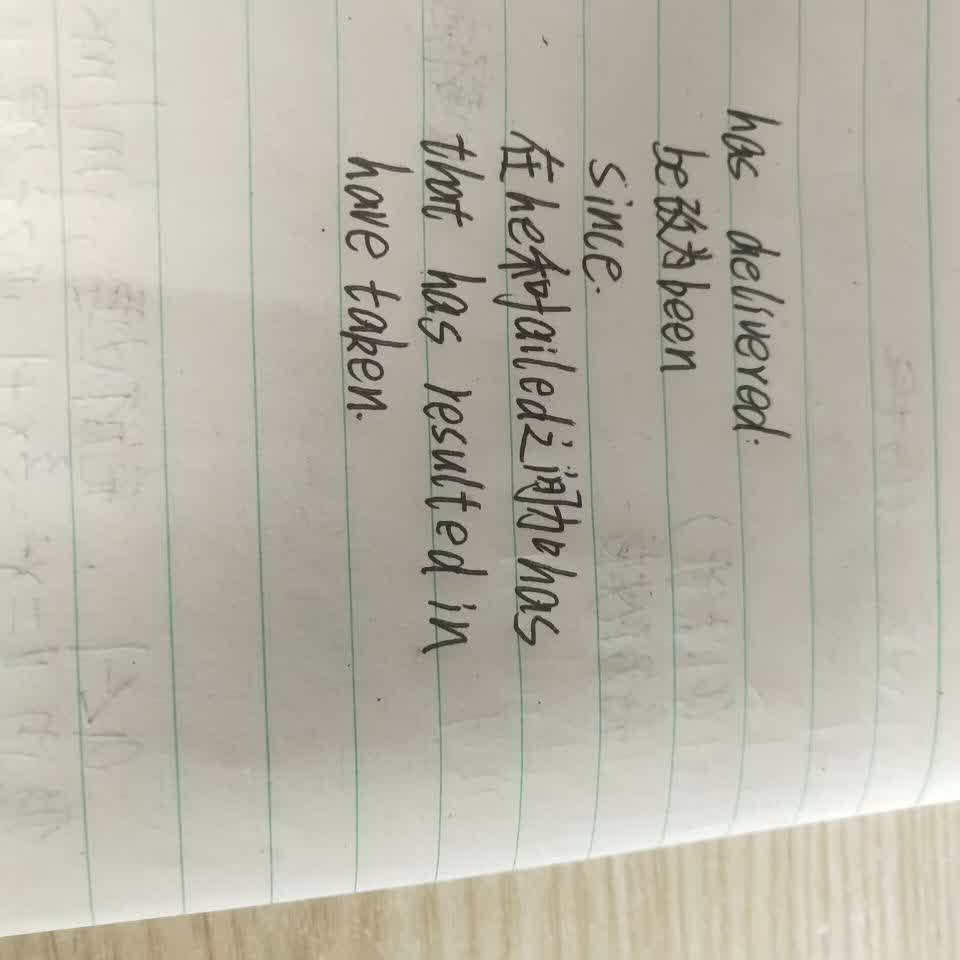 has delivered.
be改为been
since.
在he和failed之间加has
that has resulted in
have taken.